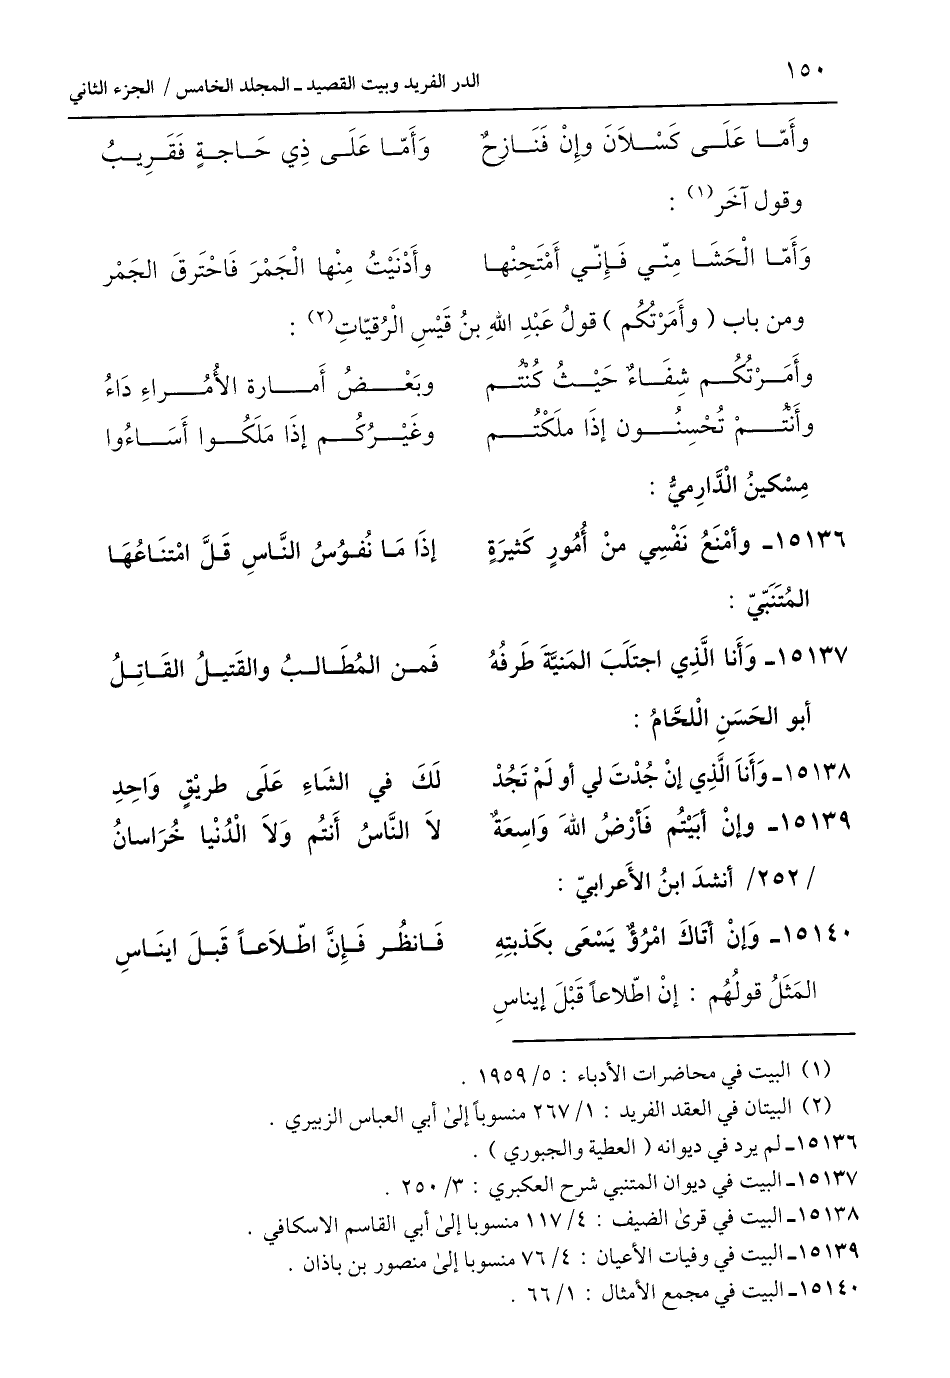 ١٥٠
الدر الفريد وبيت القصيد ـ المجلد الخامس / الجزء الثاني
وأَمّا عَلَى كَسْلاَنَ وإِنْ فَنَازِحٌ وَأَمّا عَلَى ذِي حَاجةٍ فَقَرِيبُ
وقول آخَر(١) :
وَأَمّا الْحَشَا مِنّي فَإِنّي أمْتَحِنْها وأَدْنَيْتُ مِنْها الْجَمْرَ فَاحْترقَ الجَمْر
ومن باب ( وأَمَرْتُكُم ) قولُ عَبْدِ اللهِ بنُ قَيْسِ الْرُقيّاتِ(٢) :
وأَمَرْتُكُم شِفَاءٌ حَيْثُ كُنْتُم وبَعْضُ أَمارة الأُمُراءِ دَاءُ
وأَنْتُمْ تُحْسِنُون إذَا ملَكْتُم وغَيْرُكُم إذَا مَلَكُوا أَسَاءُوا
مِسْكينُ الْدَّارِميُّ :
١٥١٣٦ـ وأمْنَعُ نَفْسِي منْ أُمُورٍ كَثيرَةٍ إذَا مَا نُفوُسُ الناسِ قَلَّ امْتنَاعُهَا
المُتَنَبّيّ :
١٥١٣٧ـ وَأَنا الَّذِي اجتلَبَ المَنيَّةَ طَرفُهُ فَمن المُطَالبُ والقَتيلُ القَاتِلُ
أبو الحَسَنِ الْلحَّامُ :
١٥١٣٨ـ وَأَنَا الَّذِي إنْ جُدْتَ لي أو لَمْ تَجُدْ لَكَ في الشَاءِ عَلَى طريْقٍ وَاحِدِ
١٥١٣٩ـ وإنْ أبَيْتُم فَأرْضُ اللهَ وَاسِعَةٌ لاَ النَّاسُ أَنتُم وَلاَ الْدُنْيا خُرَاسانُ
/ ٢٥٢/ أنشدَ ابنُ الأَعرابيّ :
١٥١٤٠ـ وَإنْ أَتَاكَ امْرُؤٌ يَسْعَى بكَذبتِهِ فَانظُر فَإنَّ اطّلاَعاً قَبلَ اينَاسِ
المَثَلُ قولُهُم : إنْ اطّلاعاً قَبْلَ إيناسِ
(١) البيت في محاضرات الأدباء : ٥/ ١٩٥٩ .
(٢) البيتان في العقد الفريد : ١/ ٢٦٧ منسوباً إلىٰ أبي العباس الزبيري .
١٥١٣٦ـ لم يرد في ديوانه ( العطية والجبوري ) .
١٥١٣٧ـ البيت في ديوان المتنبي شرح العكبري : ٣/ ٢٥٠ .
١٥١٣٨ـ البيت في قرىٰ الضيف : ٤/ ١١٧ منسوبا إلىٰ أبي القاسم الاسكافي .
١٥١٣٩ـ البيت في وفيات الأعيان : ٤/ ٧٦ منسوبا إلىٰ منصور بن باذان .
١٥١٤٠ـ البيت في مجمع الأمثال : ١/ ٦٦ .